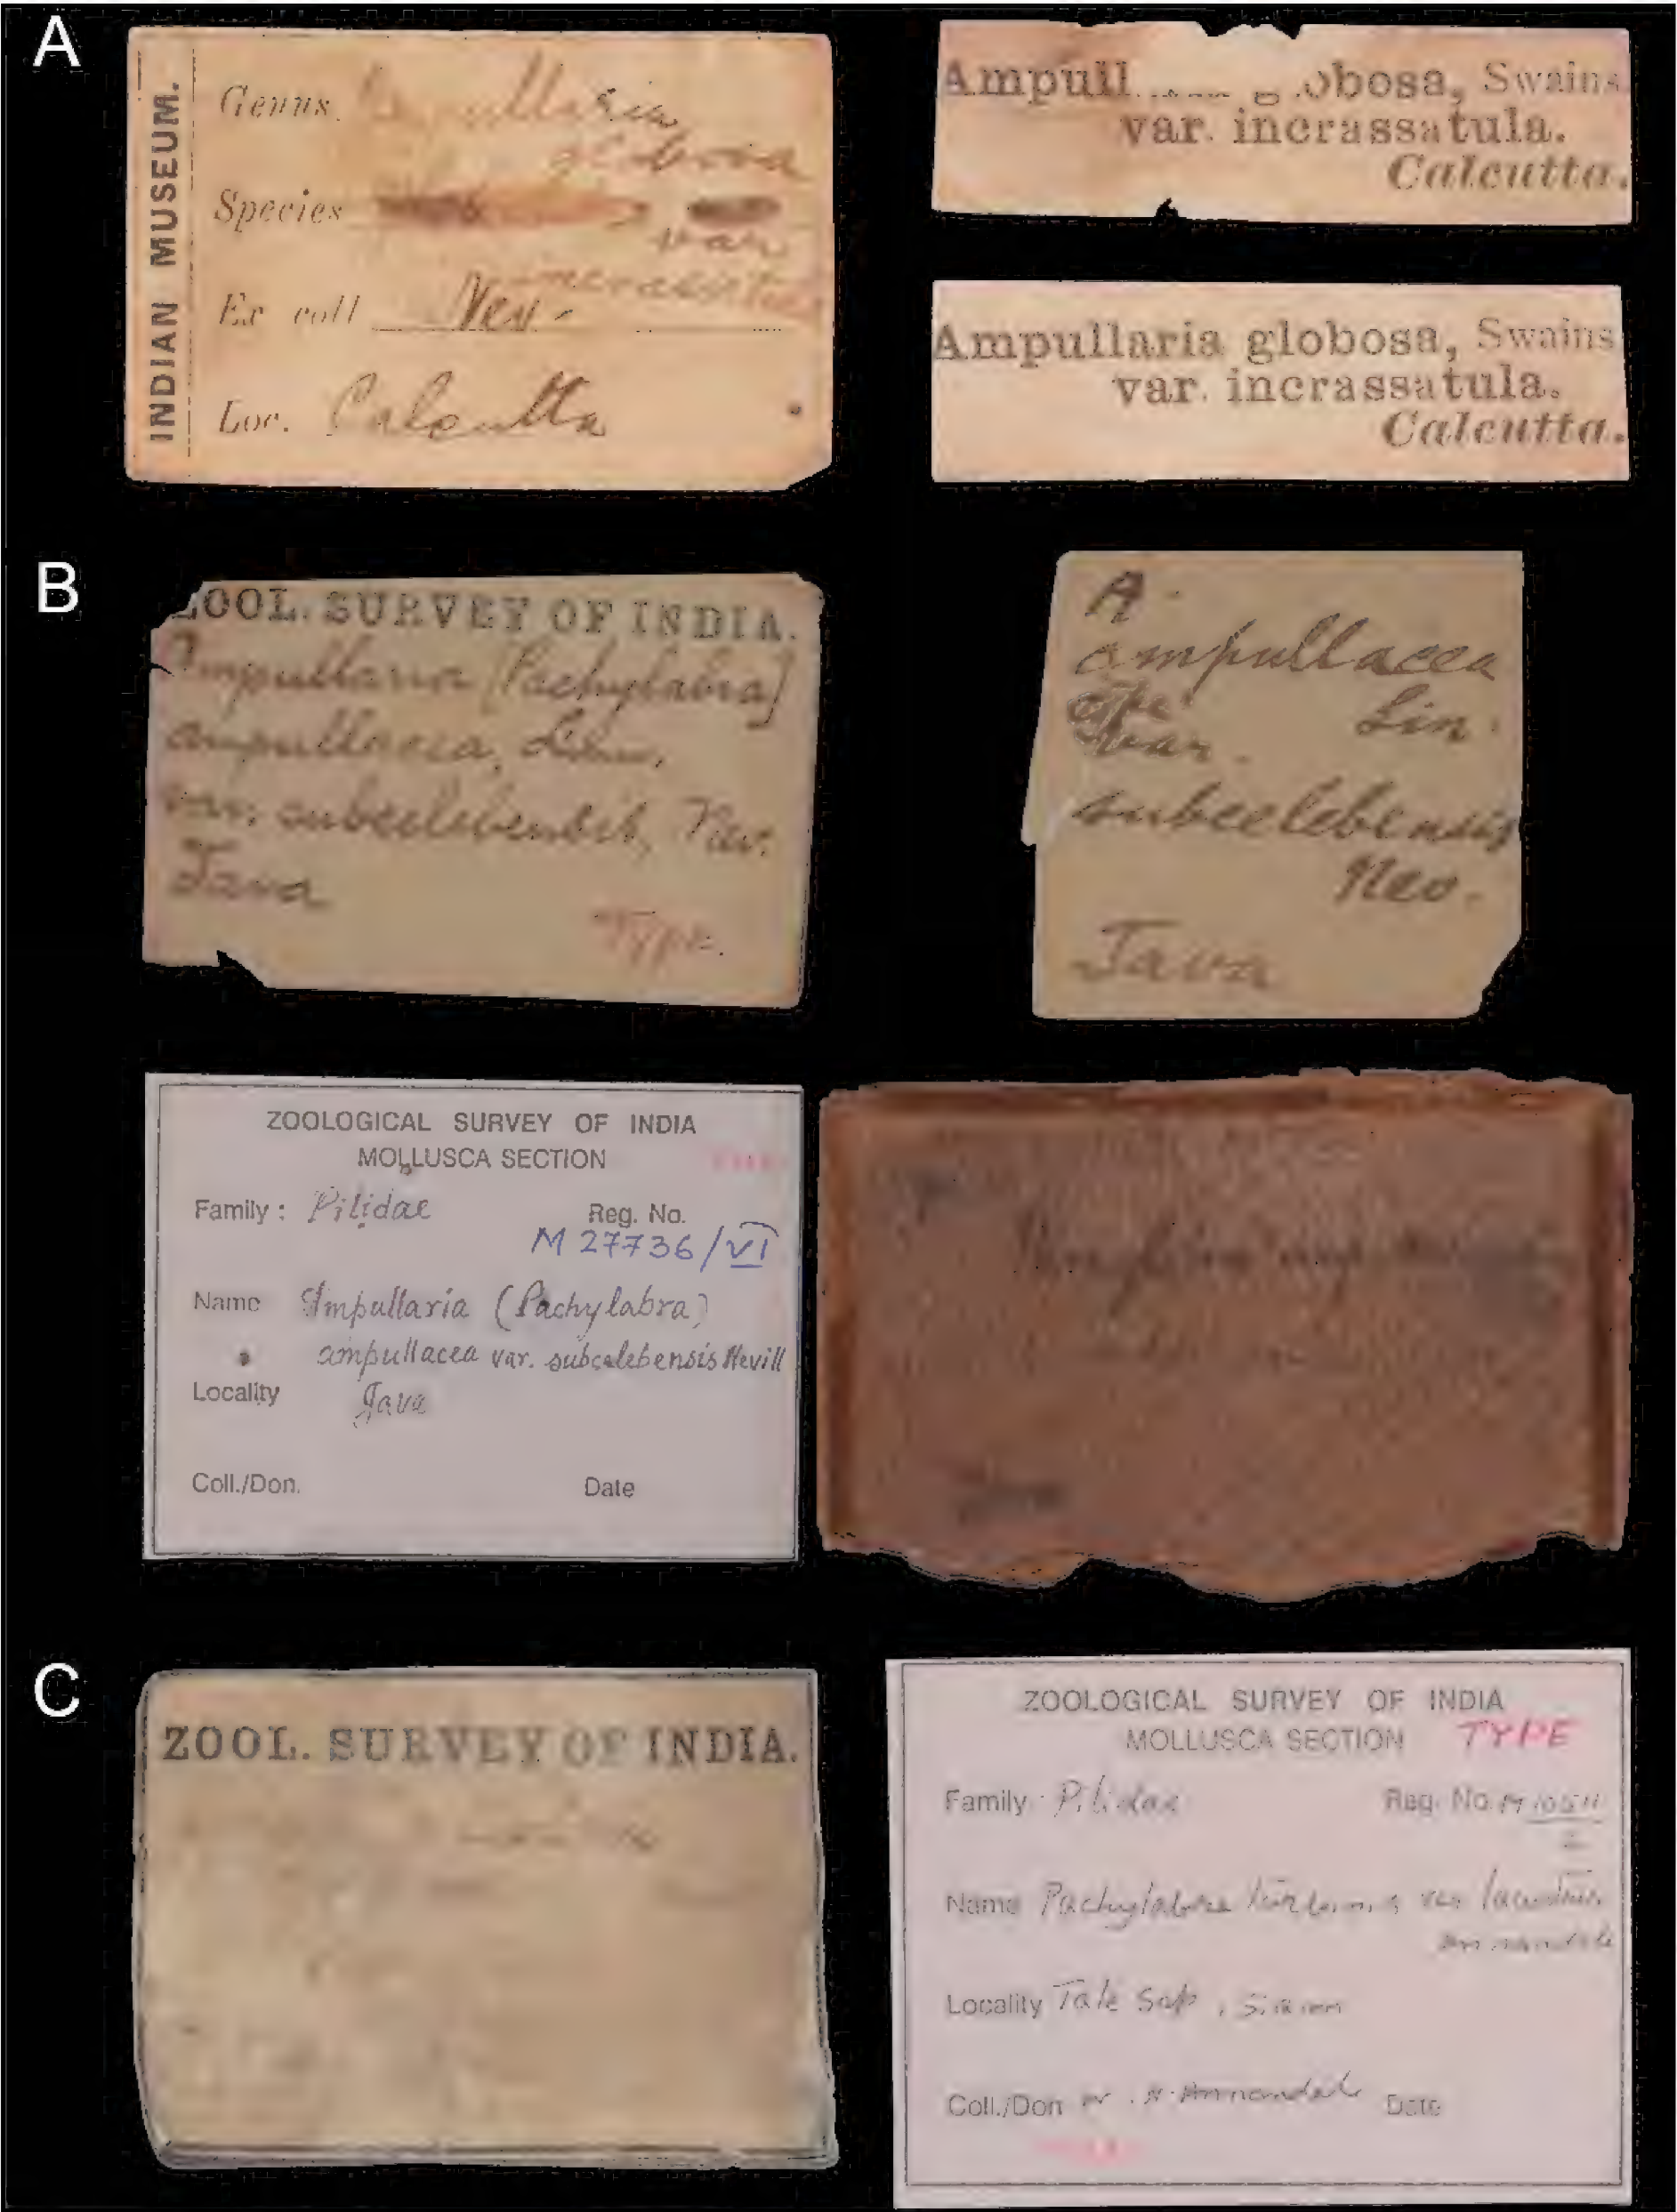 A
INDIAN MUSEUM.
Genus
globosa
Species
var
incrassatula
Ex coll Nev.
Loc. Calcutta
Ampull globosa, Swains
var. incrassatula.
Calcutta.
Ampullaria globosa, Swains
var. incrassatula.
Calcutta.
B
ZOOL. SURVEY OF INDIA.
Ampullaria [Pachylabra]
ampullacea, Linn.,
var. subcelebensis, Nev.
Java
Type.
A.
ampullacea
Lin.
var.
subcelebensis
Nev.
Java
ZOOLOGICAL SURVEY OF INDIA
MOLLUSCA SECTION
Family : Pilidae Reg. No.
M 27736/VI
Name Ampullaria (Pachylabra)
ampullacea var. subcelebensis Nevill
Locality Java
Coll./Don. Date
Java
C
ZOOL. SURVEY OF INDIA.
ZOOLOGICAL SURVEY OF INDIA
MOLLUSCA SECTION TYPE
Family Pilidae Reg. No.
Name Pachylabra var lacustris
Annandale
Locality Tale Sap, Siam
Coll./Don N. Annandale Date